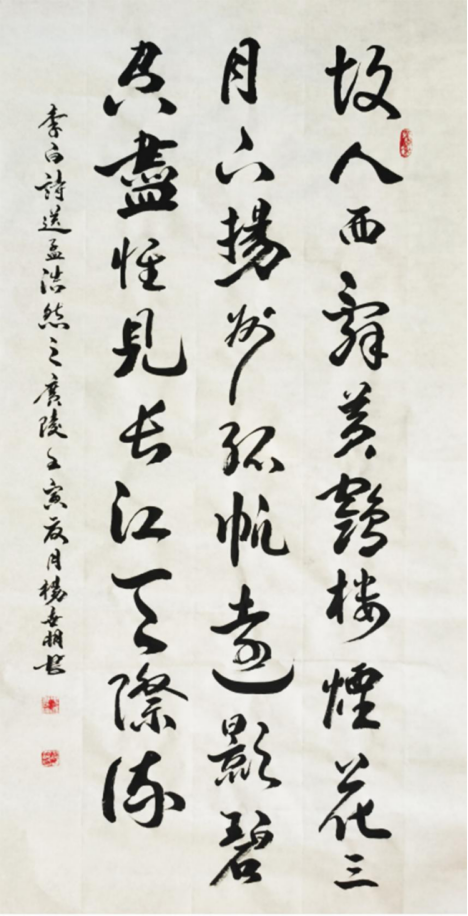 故人西辭黄鶴楼煙花三
月下揚州孤帆遠影碧
空盡惟見长江天際流
李白詩送孟浩然之廣陵壬寅夏月楊